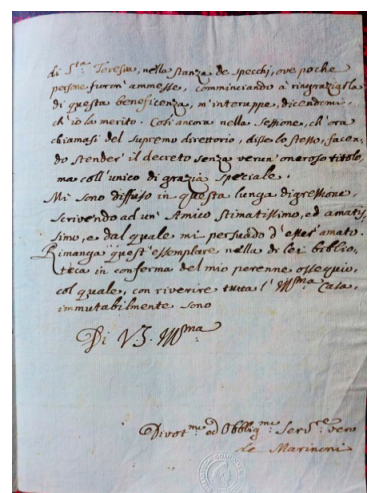 di S.ta Teresa, nella stanza de specchi, ove poche
persone furon' ammesse, comminciando à ringraziarla
di questa beneficenza, m'interuppe, dicendomi,
ch'io la merito. Così ancora nella sessione, ch'ora
chiamasi del supremo direttorio, disse lo stesso, facen-
do stender' il decreto senza verun' oneroso titolo,
ma coll'unico di grazia speciale.
Mi sono diffuso in questa lunga digressione,
scrivendo ad un' Amico stimatissimo, ed amatis-
simo, e dal quale mi persuado d'esser' amato.
Rimanga quest'essemplare nella di lei biblio-
teca in conferma del mio perenne ossequio,
col quale, con riverire tutta l'Ill.ma Casa,
immutabilmente sono
Di V.S. Ill.ma
Divot.mo ed Obblig.mo Serv.re vero
de Marinoni